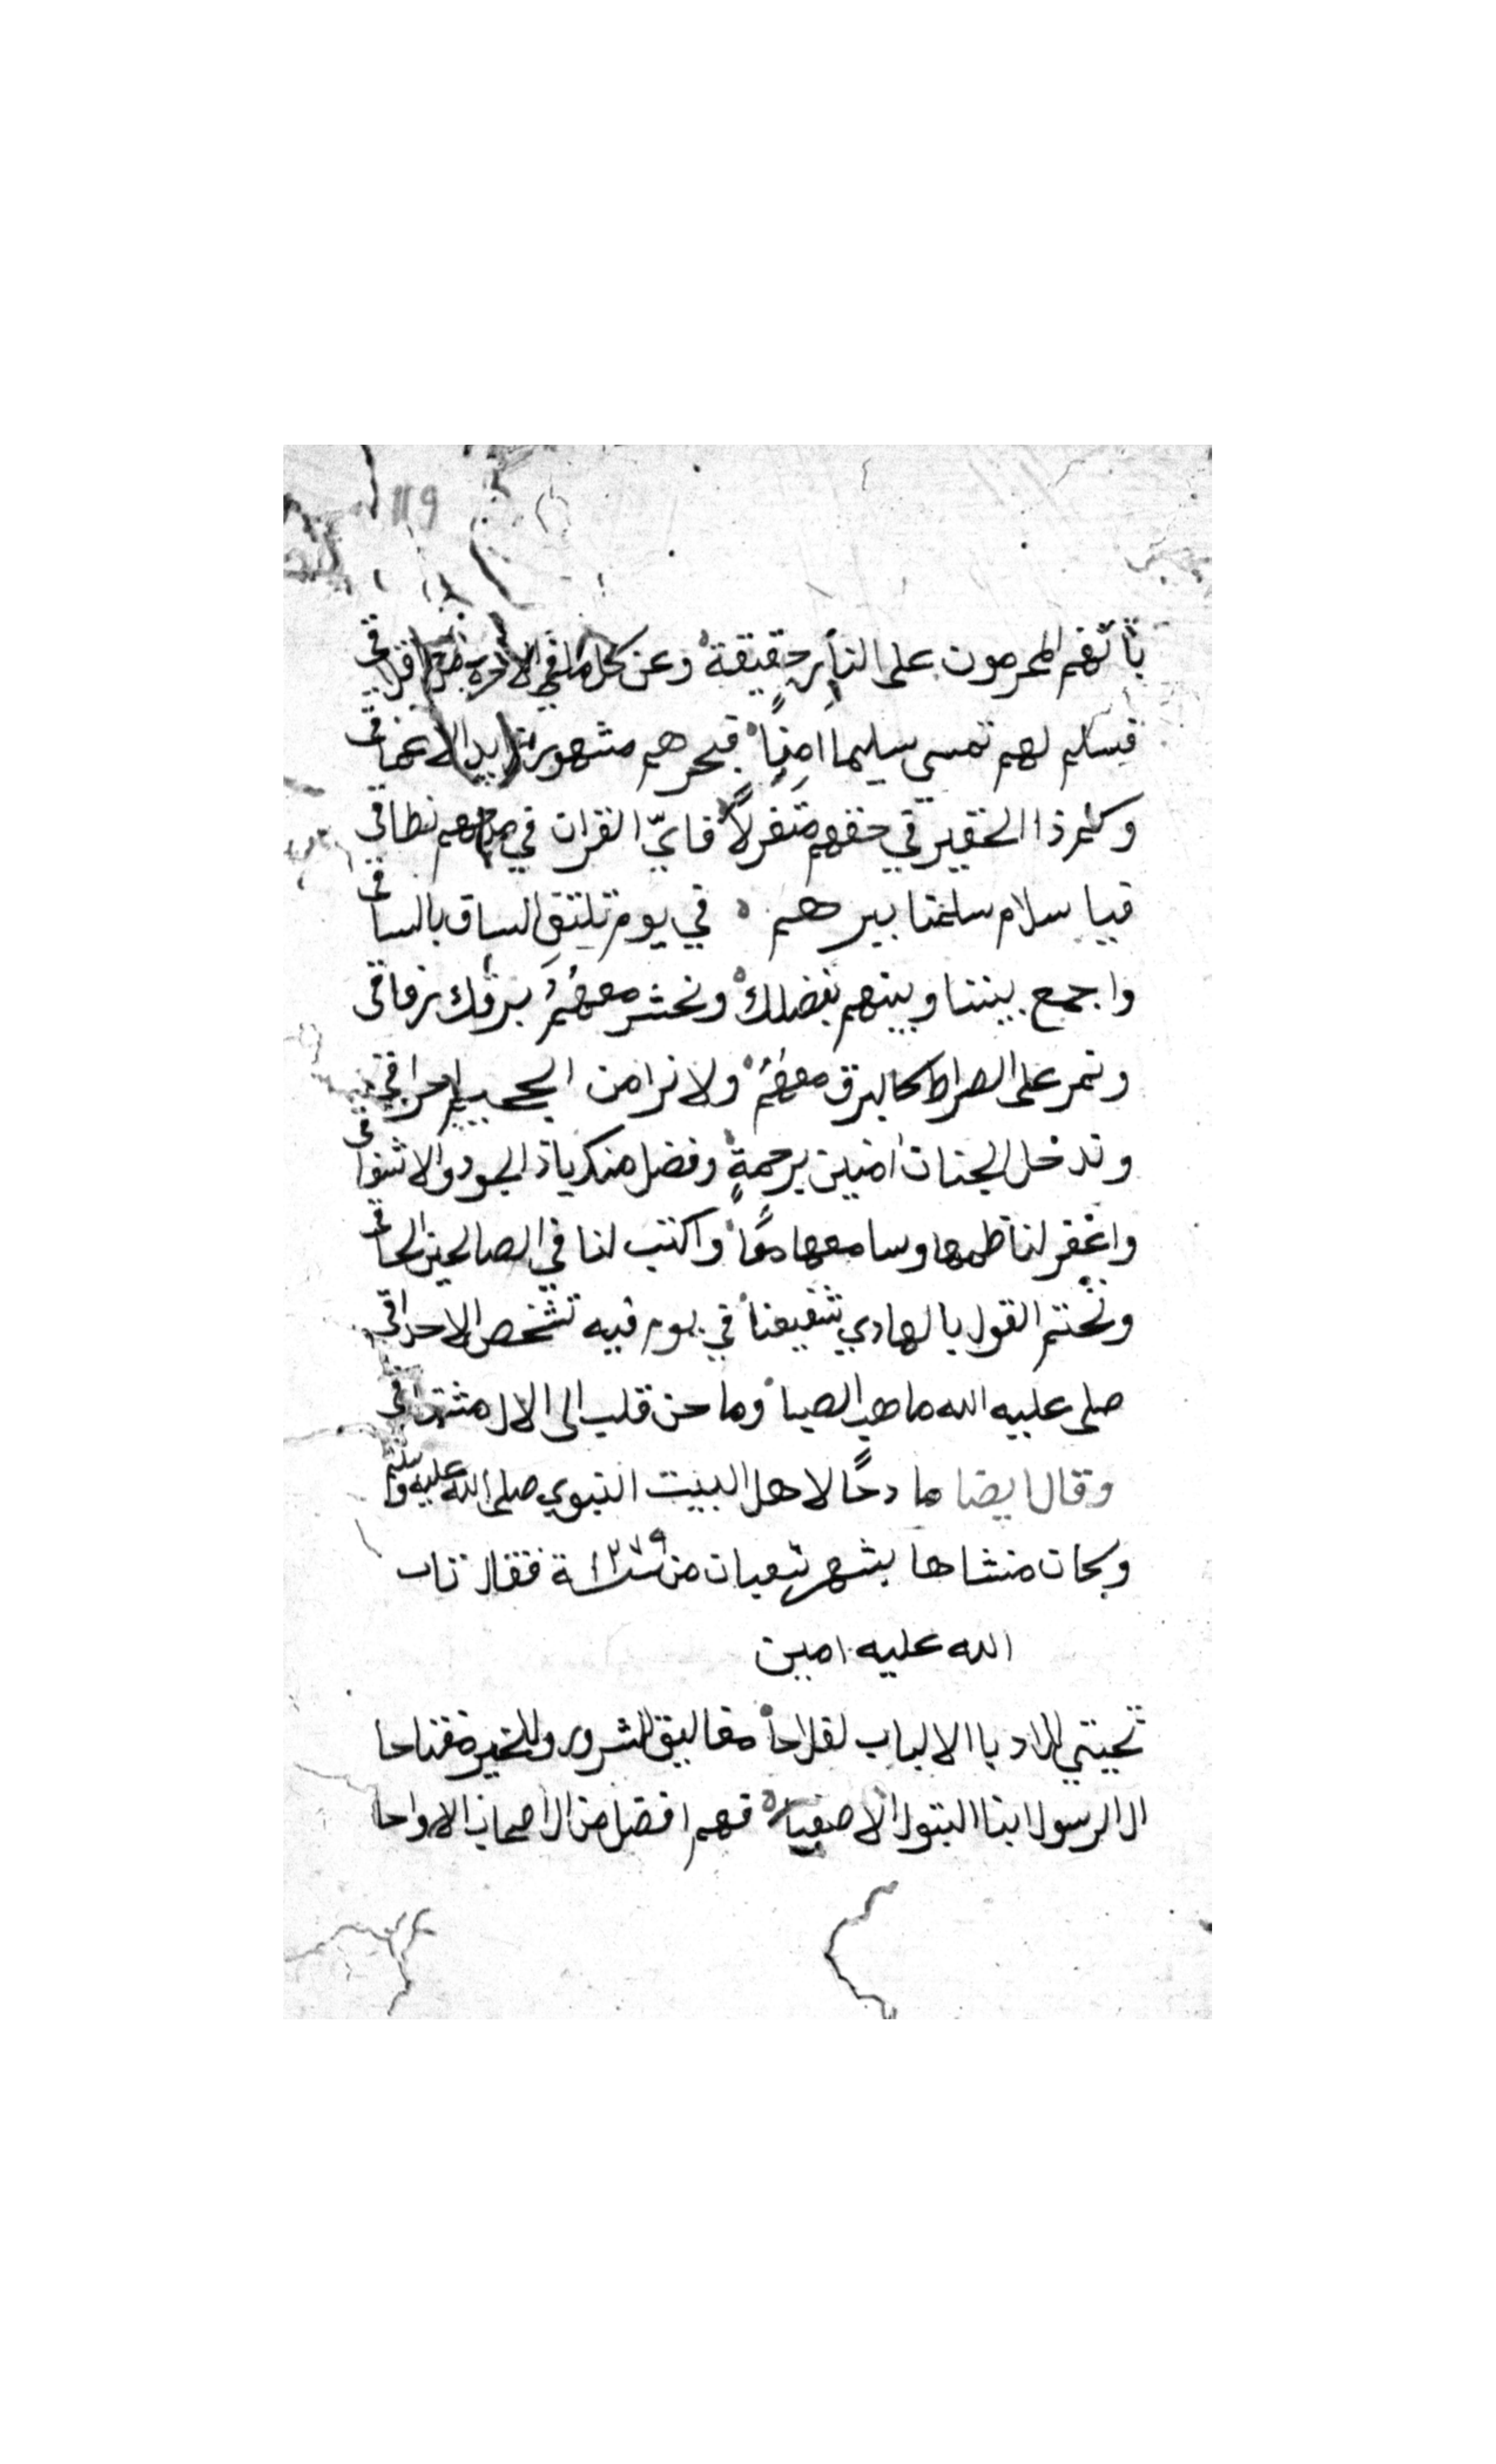 119
بأنهم المحرمون على النار حقيقة وعن كل ما في
فسلم لهم تمسي سليما امنًا فبحرهم مشهور
وكلم ذا الحقير في حقهم متغزلًا فايّ القران في نطاقي
فيا سلام سلمنا ببرهم في يوم تلتق الساق بالساقي
واجمع بيننا وبينهم بفضلك ونحشر معهُمُ برفك رفاقي
ونمر على الصراط كالبرق معهُمُ ولا نرا من الجحيم احراقي
وندخل الجنات امنين برحمةٍ وفضل منك ياذ الجود والاشفاقي
واغفر لناظمها وسامعها معًا واكتب لنا في الصالحين الحاقي
ونختم القول بالهادي شفيعنا في يوم فيه تشخص الاحداقي
صلى عليه الله ما هب الصبا وما حن قلب الى الال مشتاقي
وقال ايضا مادحًا لاهل البيت النبوي صلى الله عليه وسلم
وكان منشاها بشهر شعبان من سنة ١٢٧٩ فقال تاب
الله عليه امين
تحيتي الالباب مغاليق للشرور وللخير مفتاحا
ال الرسول ابنا البتول الاصفياء فهم افضل من الارواحا